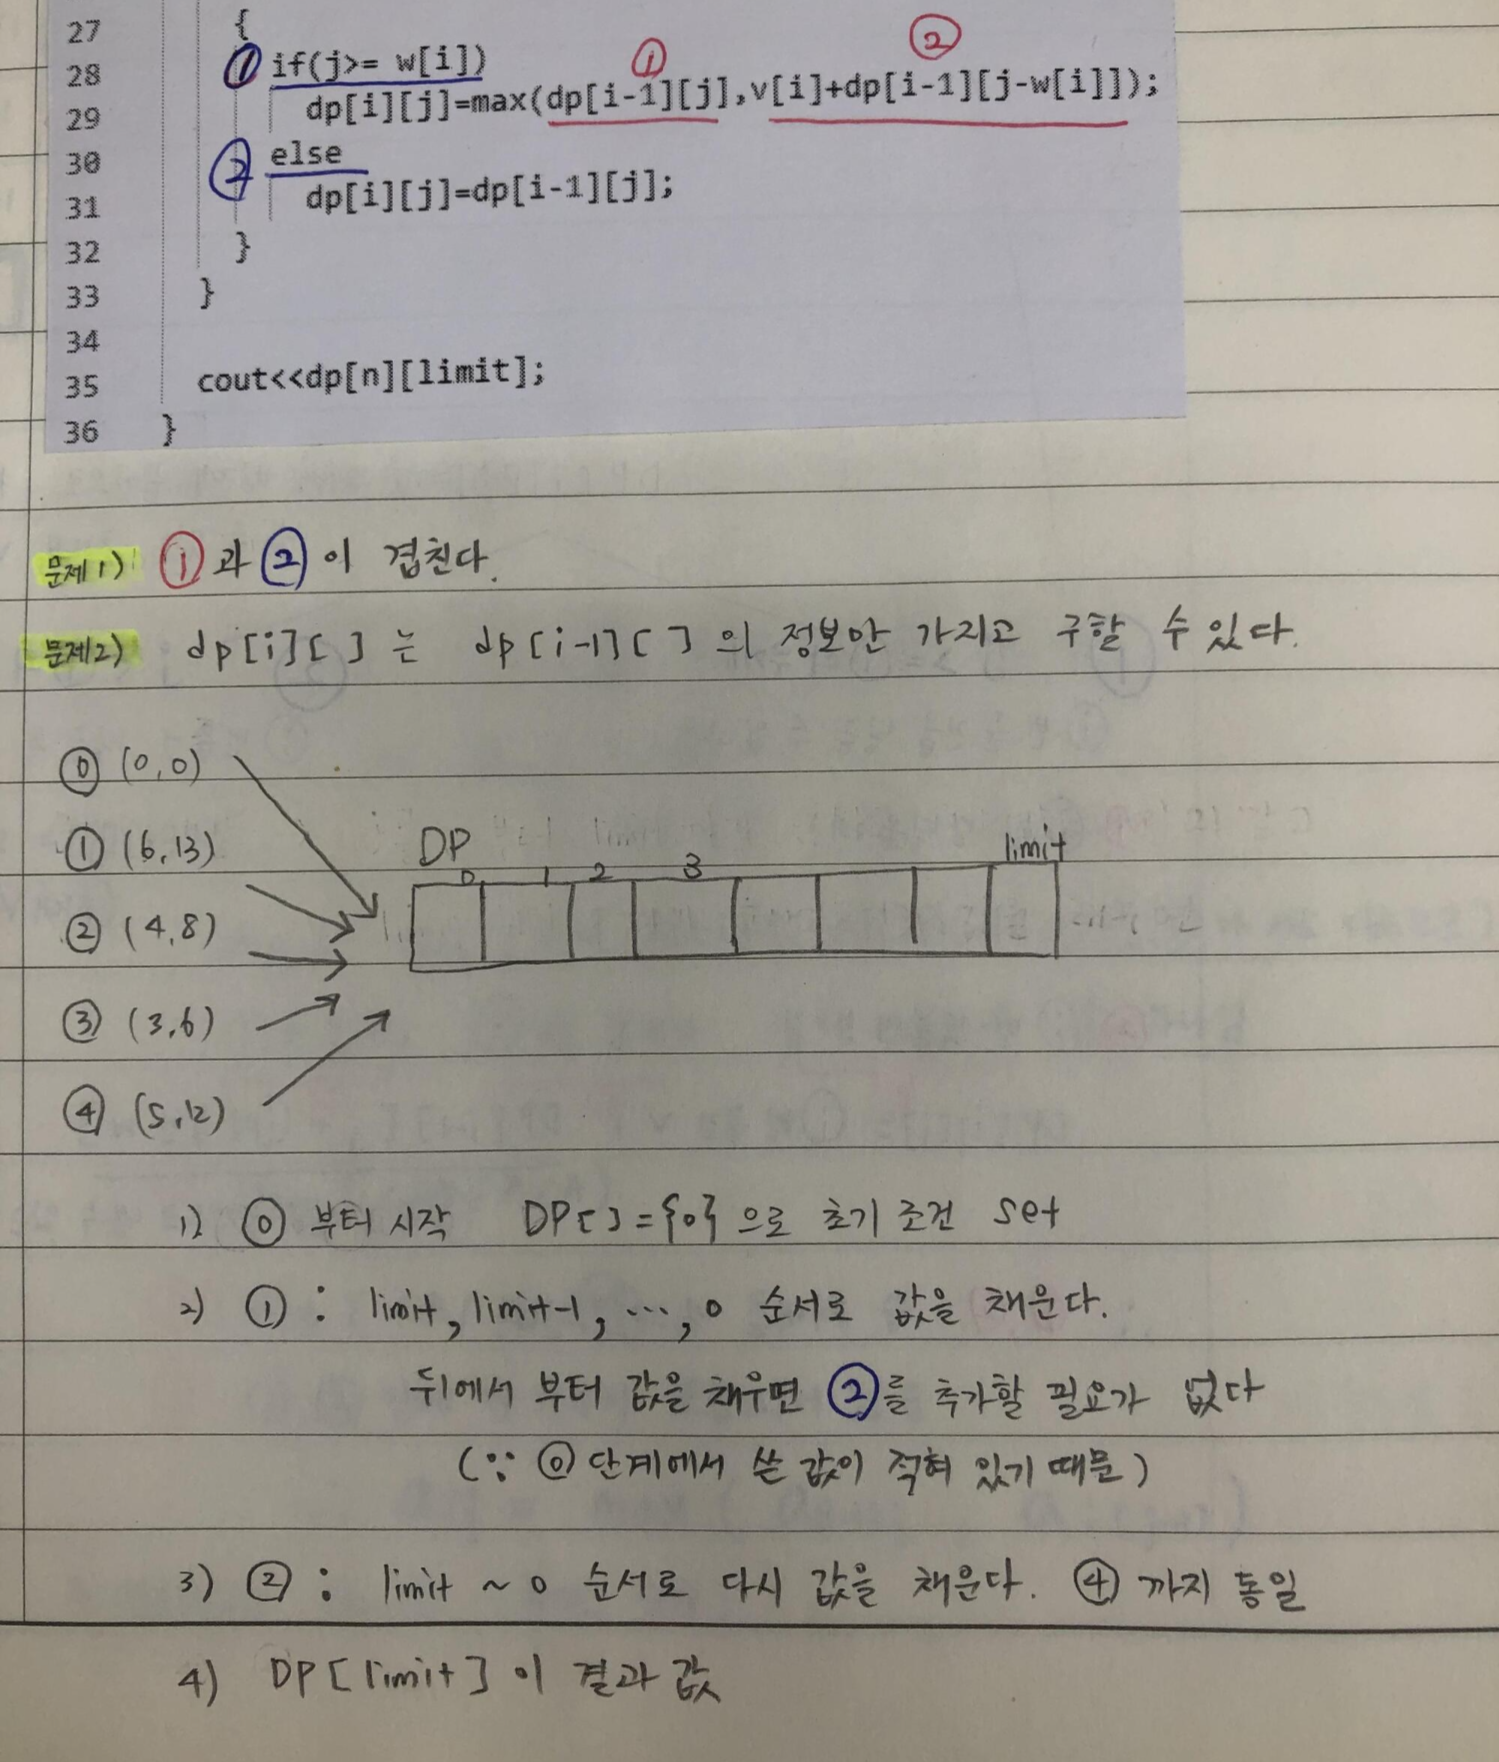 27 {
① if(j>= w[i]) ① ②
28
29 dp[i][j]=max(dp[i-1][j],v[i]+dp[i-1][j-w[i]]);
30 ② else
31 dp[i][j]=dp[i-1][j];
32 }
33 }
34
35 cout<<dp[n][limit];
36 }
문제1) ①과 ②이 겹친다.
문제2) dp[i][ ] 는 dp[i-1][ ] 의 정보만 가지고 구할 수 있다.
⓪ (0,0)
① (6,13)
DP limit
0 1 2 3
② (4,8)
③ (3,6)
④ (5,12)
1) ⓪ 부터 시작 DP[ ]={0} 으로 초기 조건 set
2) ① : limit, limit-1, ..., 0 순서로 값을 채운다.
뒤에서 부터 값을 채우면 ②를 추가할 필요가 없다
(∵ ⓪ 단계에서 쓴 값이 적혀 있기 때문)
3) ② : limit ~ 0 순서로 다시 값을 채운다. ④ 까지 동일
4) DP[limit] 이 결과 값